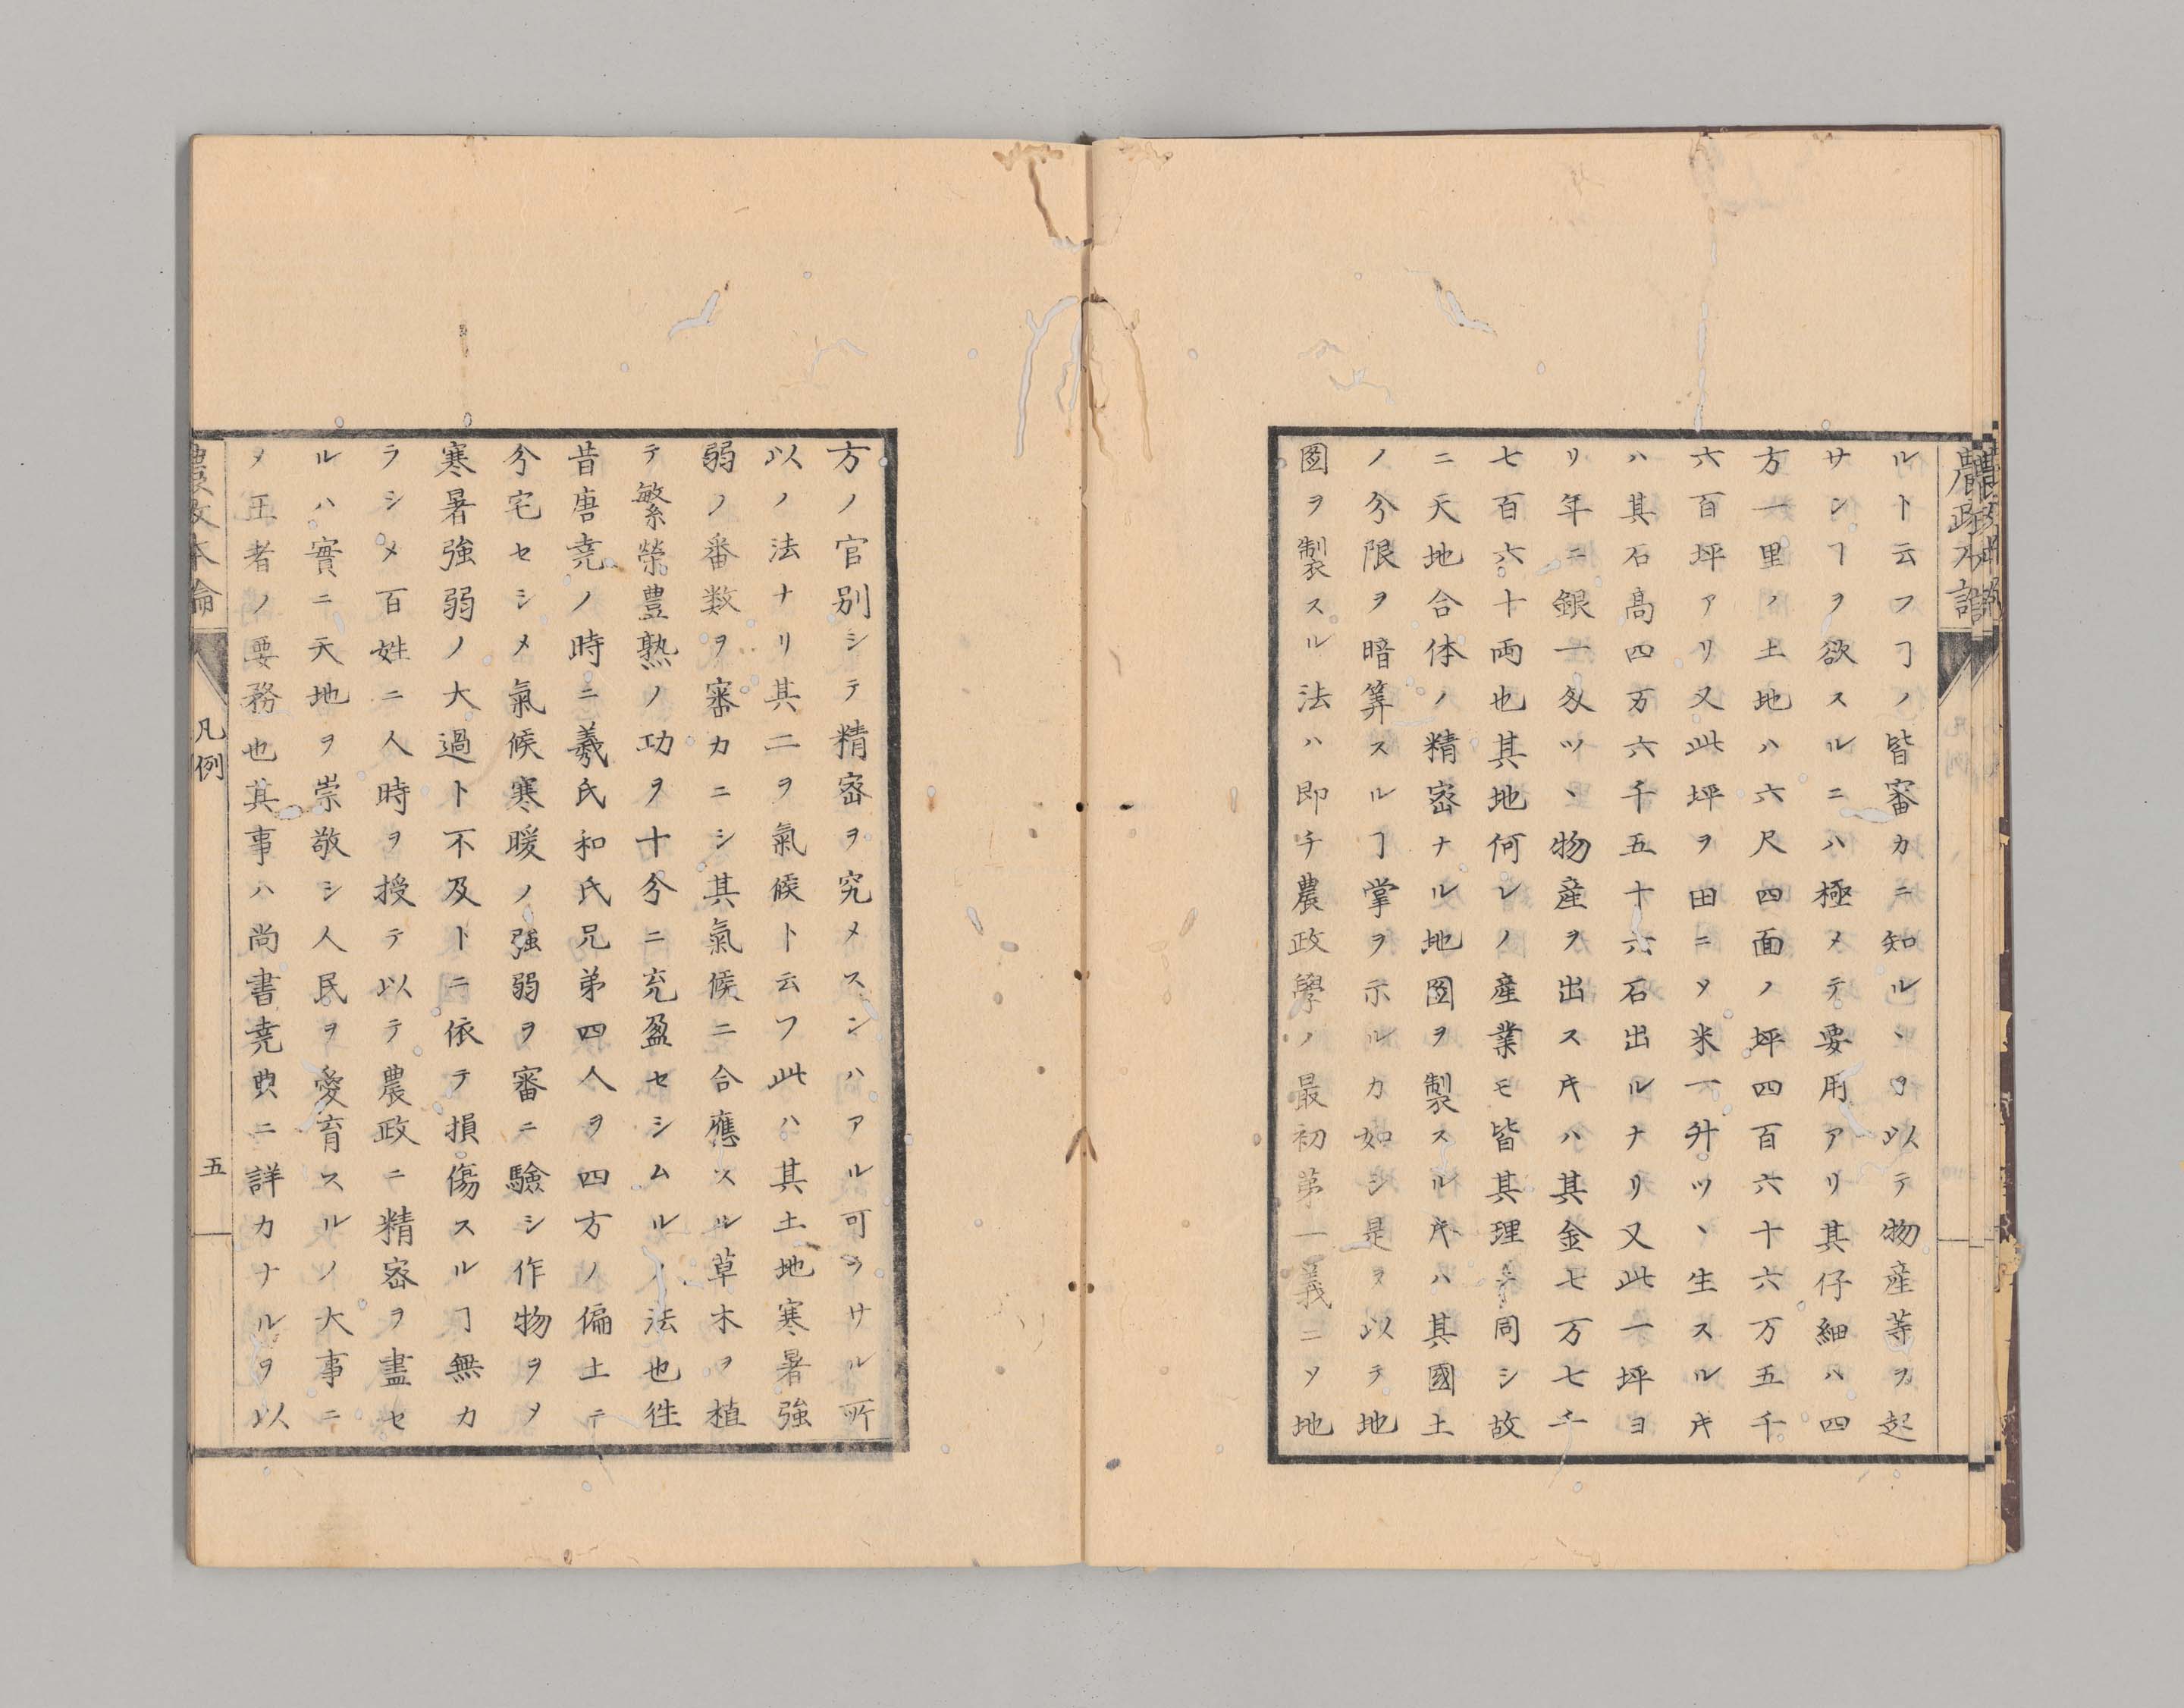 農政本論
ルト云フヿノ皆審カニ知ルヽヲ以テ物産等ヲ起
サンヿヲ欲スルニハ極メテ要用アリ其仔細ハ四
方一里ノ土地ハ六尺四面ノ坪四百六十六万五千
六百坪アリ又此坪ヲ田ニメ米一升ツヽ生スルキ
ハ其石高四万六千五十六石出ルナリ又此一坪ヨ
リ年ニ銀一匁ツヽ物産ヲ出スキハ其金七万七千
七百六十両也其地何レノ産業モ皆其理ニ同シ故
ニ天地合体ノ精密ナル地圖ヲ製スルキハ其國土
ノ分限ヲ暗算スルヿ掌ヲ示ルカ如シ是ヲ以テ地
圖ヲ製スル法ハ即チ農政學ノ最初第一義ニメ地
方ノ官別シテ精密ヲ究メスンハアル可ラサル所
以ノ法ナリ其二ヲ氣候ト云フ此ハ其土地寒暑強
弱ノ番数ヲ審カニシ其氣候ニ合應スル草木ヲ植
テ繁榮豊熟ノ功ヲ十分ニ充盈セシムルノ法也徃
昔唐尭ノ時ニ羲氏和氏兄弟四人ヲ四方ノ偏土ニ
分宅セシメ氣候寒暖ノ強弱ヲ審ニ驗シ作物ヲメ
寒暑強弱ノ大過ト不及トニ依テ損傷スルヿ無カ
ラシメ百姓ニ人時ヲ授テ以テ農政ニ精密ヲ盡セ
ルハ實ニ天地ヲ崇敬シ人民ヲ愛育スルノ大事ニ
メ王者ノ要務也其事ハ尚書尭典ニ詳カナルヲ以
農政本論
凡例
五